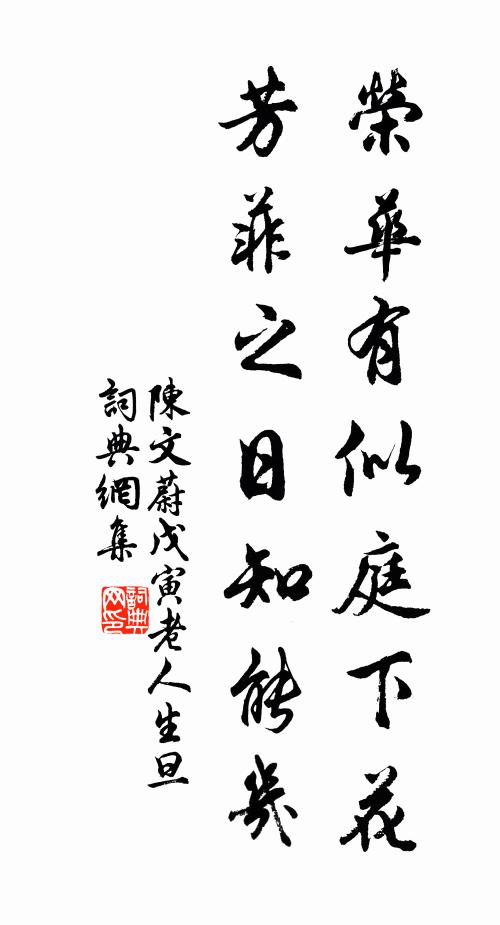 榮華有似庭下花
芳菲之日知能幾
陳文蔚戊寅老人生旦
詞典網集
詞典网印